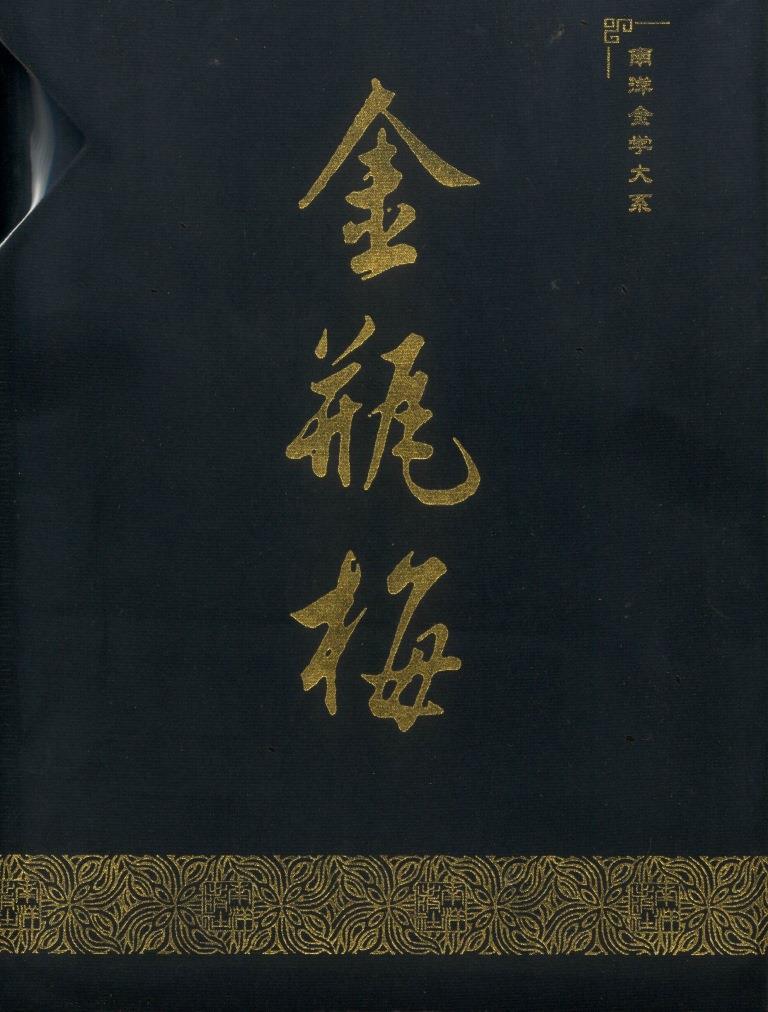 南洋金学大系
金瓶梅